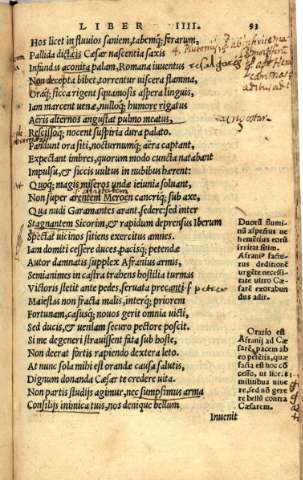 LIBER IIII. 93
Hos licet in fluuios saniem, tabemq; ferarum,
Pallida dictæis Cæsar nascentia saxis
Infundas aconita palam, Romana iuuentus
Non decepta bibet, torrentur uiscera flamma,
Oraq; sicca rigent squamosis aspera linguis,
Iam marcent uenæ, nulloq; humore rigatus
Aeris alternos angustat pulmo meatus,
Rescissoq; nocent suspiria dura palato.
Pandunt ora siti, nocturnumq; aëra captant,
Expectant imbres, quorum modo cuncta natabant
Impulsu, & siccis uultus in nubibus hærent:
Quoq; magis miseros unda ieiunia soluant,
Non super arentem Meroen cancriq; sub axe,
Qua nudi Garamantes arant, sedere: sed inter
Stagnantem Sicorim, & rapidum deprensus Iberum
Spectat uicinos sitiens exercitus amnes.
Iam domiti cessere duces, pacisq; petendæ
Autor damnatis supplex Afranius armis,
Semianimes in castra trahens hostilia turmas
Victoris stetit ante pedes, seruata precanti
Maiestas non fracta malis, interq; priorem
Fortunam, casusq; nouos gerit omnia uicti,
Sed ducis, & ueniam securo pectore poscit.
Si me degeneri strauissent fata sub hoste,
Non deerat fortis rapiendo dextera leto.
At nunc sola mihi est orandæ causa salutis,
Dignum donanda Cæsar te credere uita.
Non partis studijs agimur, nec sumpsimus arma
Consilijs inimica tuis, nos denique bellum
Inuenit
Duorũ flumi-
nũ aspectus ue
hemẽtius eorũ
irritat sitim.
Afranij factus
rus deditionẽ
urgẽte necessi-
tate uitro Cæ-
saré exorabun
dus adit.
Oratio est
Afranij ad Cæ-
sarẽ, pacem ab
eo petẽtis, quæ
facta est hoc cō
cesso, ut licet
militibus uiue
re, sed nō gere
re bella contra
Cæsarem.